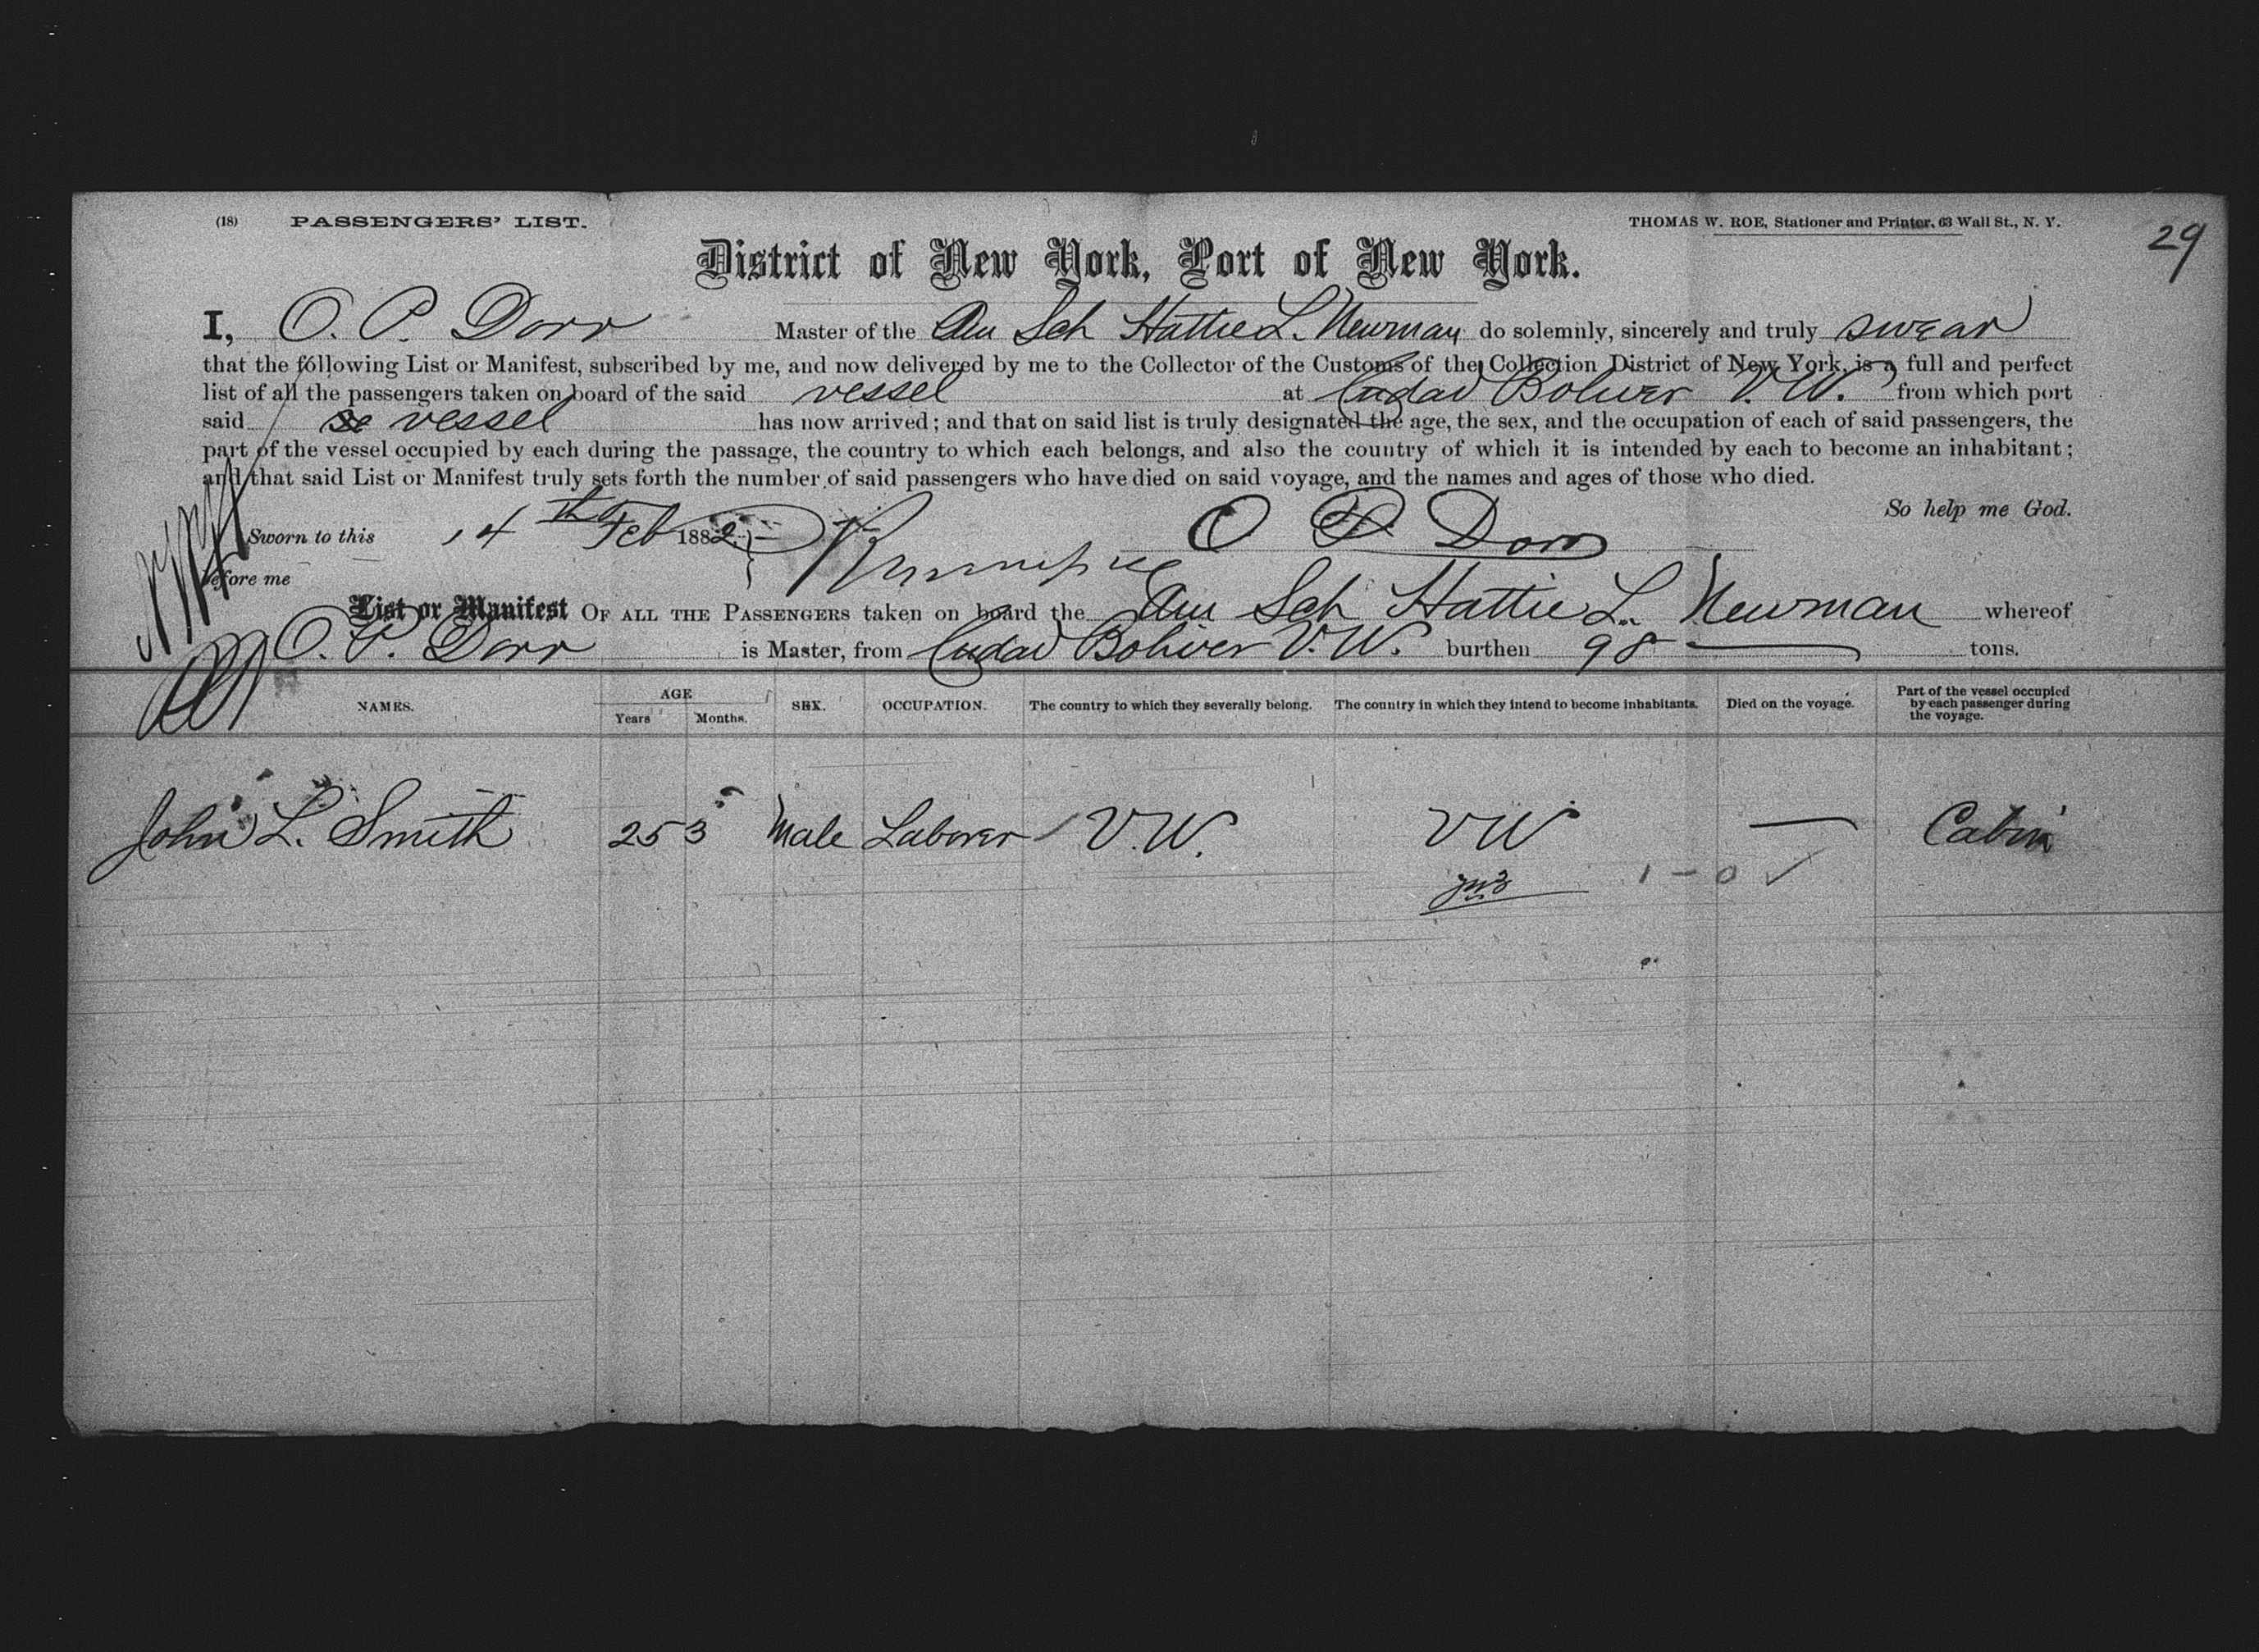 (18) PASSENGERS' LIST. THOMAS W. ROE, Stationer and Printer, 63 Wall St., N. Y.
29
District of New York, Port of New York.
I, O. P. Dorr Master of the Am Sch Hattie L. Newman do solemnly, sincerely and truly swear
that the following List or Manifest, subscribed by me, and now delivered by me to the Collector of the Customs of the Collection District of New York, is a full and perfect
list of all the passengers taken on board of the said vessel at Cudad Boliver V. W. from which port
said vessel has now arrived; and that on said list is truly designated the age, the sex, and the occupation of each of said passengers, the
part of the vessel occupied by each during the passage, the country to which each belongs, and also the country of which it is intended by each to become an inhabitant;
and that said List or Manifest truly sets forth the number of said passengers who have died on said voyage, and the names and ages of those who died.
So help me God.
Sworn to this 14th Feb 1882 O P Dorr
before me
List or Manifest OF ALL THE PASSENGERS taken on board the Am Sch Hattie L. Newman whereof
O. P. Dorr is Master, from Cudad Boliver V. W. burthen 98 tons.
NAMES. AGE Years Months. SEX. OCCUPATION. The country to which they severally belong. The country in which they intend to become inhabitants. Died on the voyage. Part of the vessel occupied by each passenger during the voyage.
John L. Smith 25 3 Male Laborer V. W. V W — Cabin
1 - 0 ✓